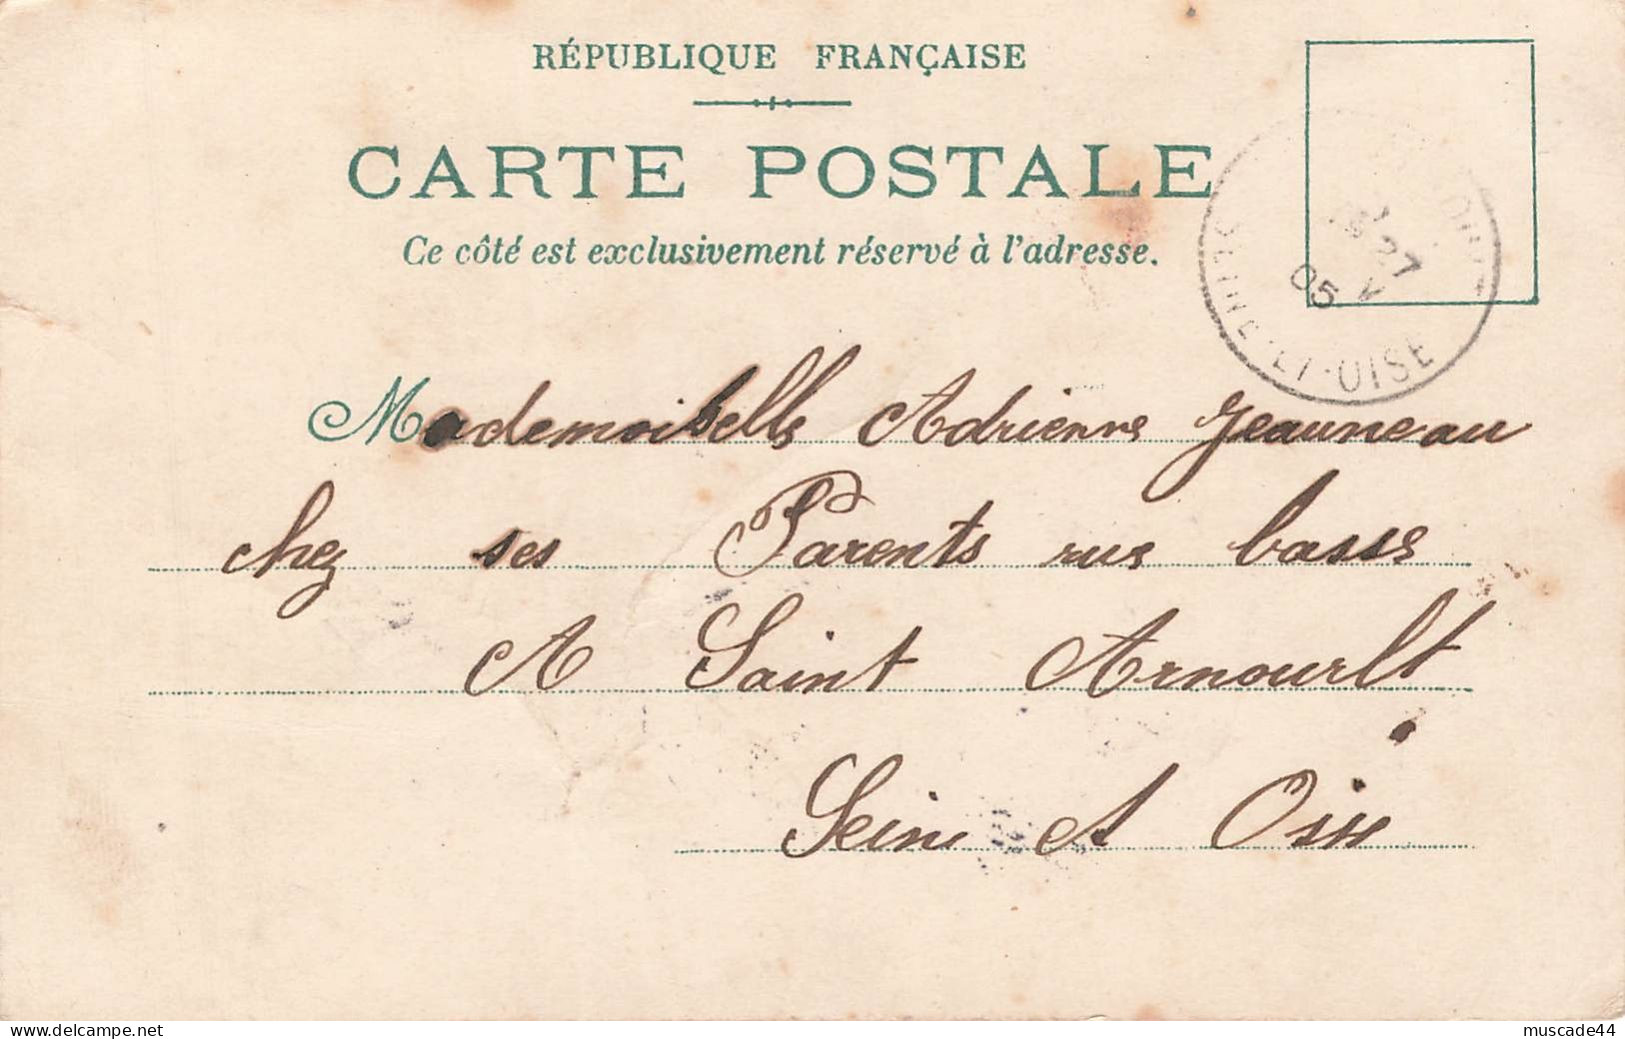 RÉPUBLIQUE FRANÇAISE
CARTE POSTALE
Ce côté est exclusivement réservé à l'adresse.
27
05
SEINE-ET-OISE
Mademoiselle Adrienne Jeauneau
chez ses Parents rue basse
A Saint Arnourlt
Seine et Oise
delcampe.net
muscade44